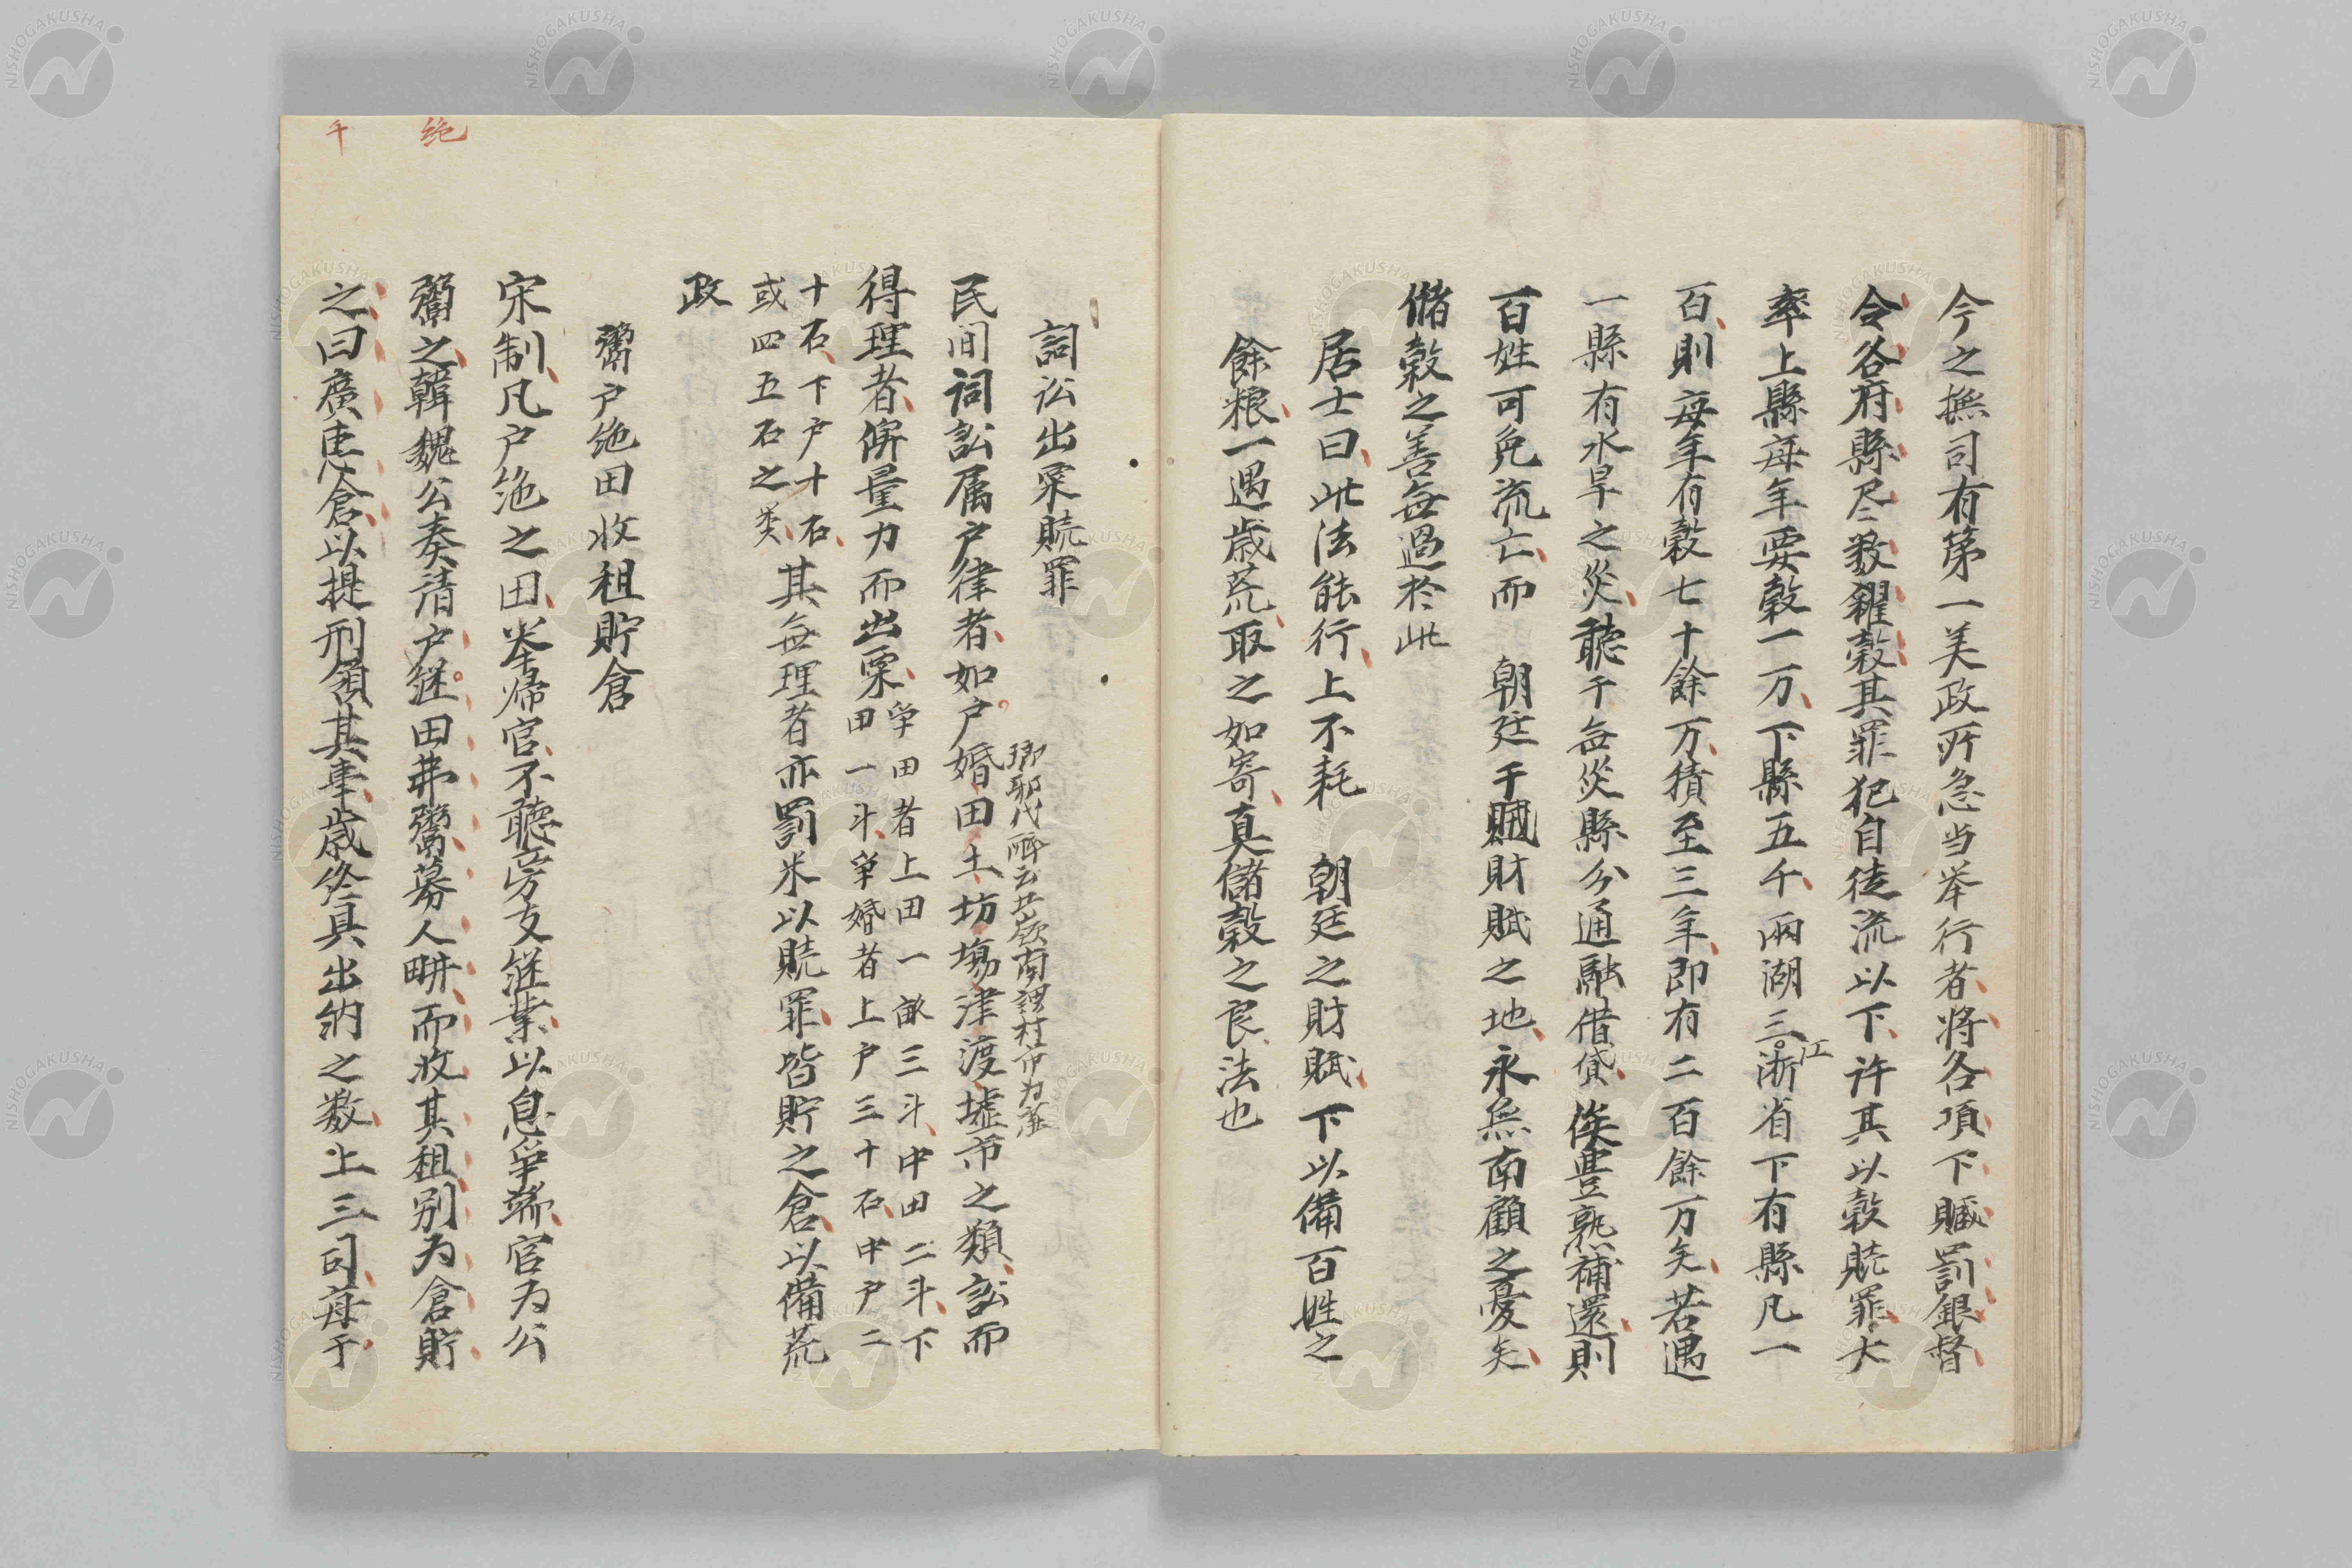 今之撫司有第一美政所急当举行者将各項下贓罰銀督
令各府縣尽数糴穀其罪犯自徒流以下許其以穀贖罪大
率上縣每年要穀一万下縣五千兩湖三浙省下有縣凡一
江
百則每年有穀七十餘万積至三年即有二百餘万矣若遇
一縣有水旱之災聽于無災縣分通融借貸俟豊熟補還則
百姓可免流亡而 朝廷于賦財賦之地永無南顧之憂矣
儲穀之善無過於此
居士曰此法能行上不耗 朝廷之財賦下以備百姓之
餘粮一遇歳荒取之如寄真儲穀之良法也
詞訟出粟贖罪
民间词訟属户律者如户婚田土坊塲津渡墟市之類訟而
得理者俾量力而出粟
争田者上田一畝三斗中田二斗下
田一斗争婚者上户三十石中户二
十石下户十石
或四五石之类
其無理者亦罰米以贖罪皆貯之倉以備荒
政
鬻户绝田收祖貯倉
宋制凡户绝之田举帰官不聽旁支継業以息争端官为公
鬻之韓魏公奏清户継田弗鬻募人畊而收其祖别为倉貯
之曰廣惠倉以提刑領其事歳终具出納之数上三司每于
绝
千
NISHOGAKUSHA